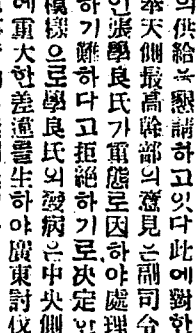 의供給을懇請하고잇다此에對한
奉天側最高幹部의意見은副司令
인張學良氏가重態로因하야處理
하기難하다고拒絶하기로決定인
模樣으로學良氏의發病은中央側
에重大한差違를生하야廣東討伐